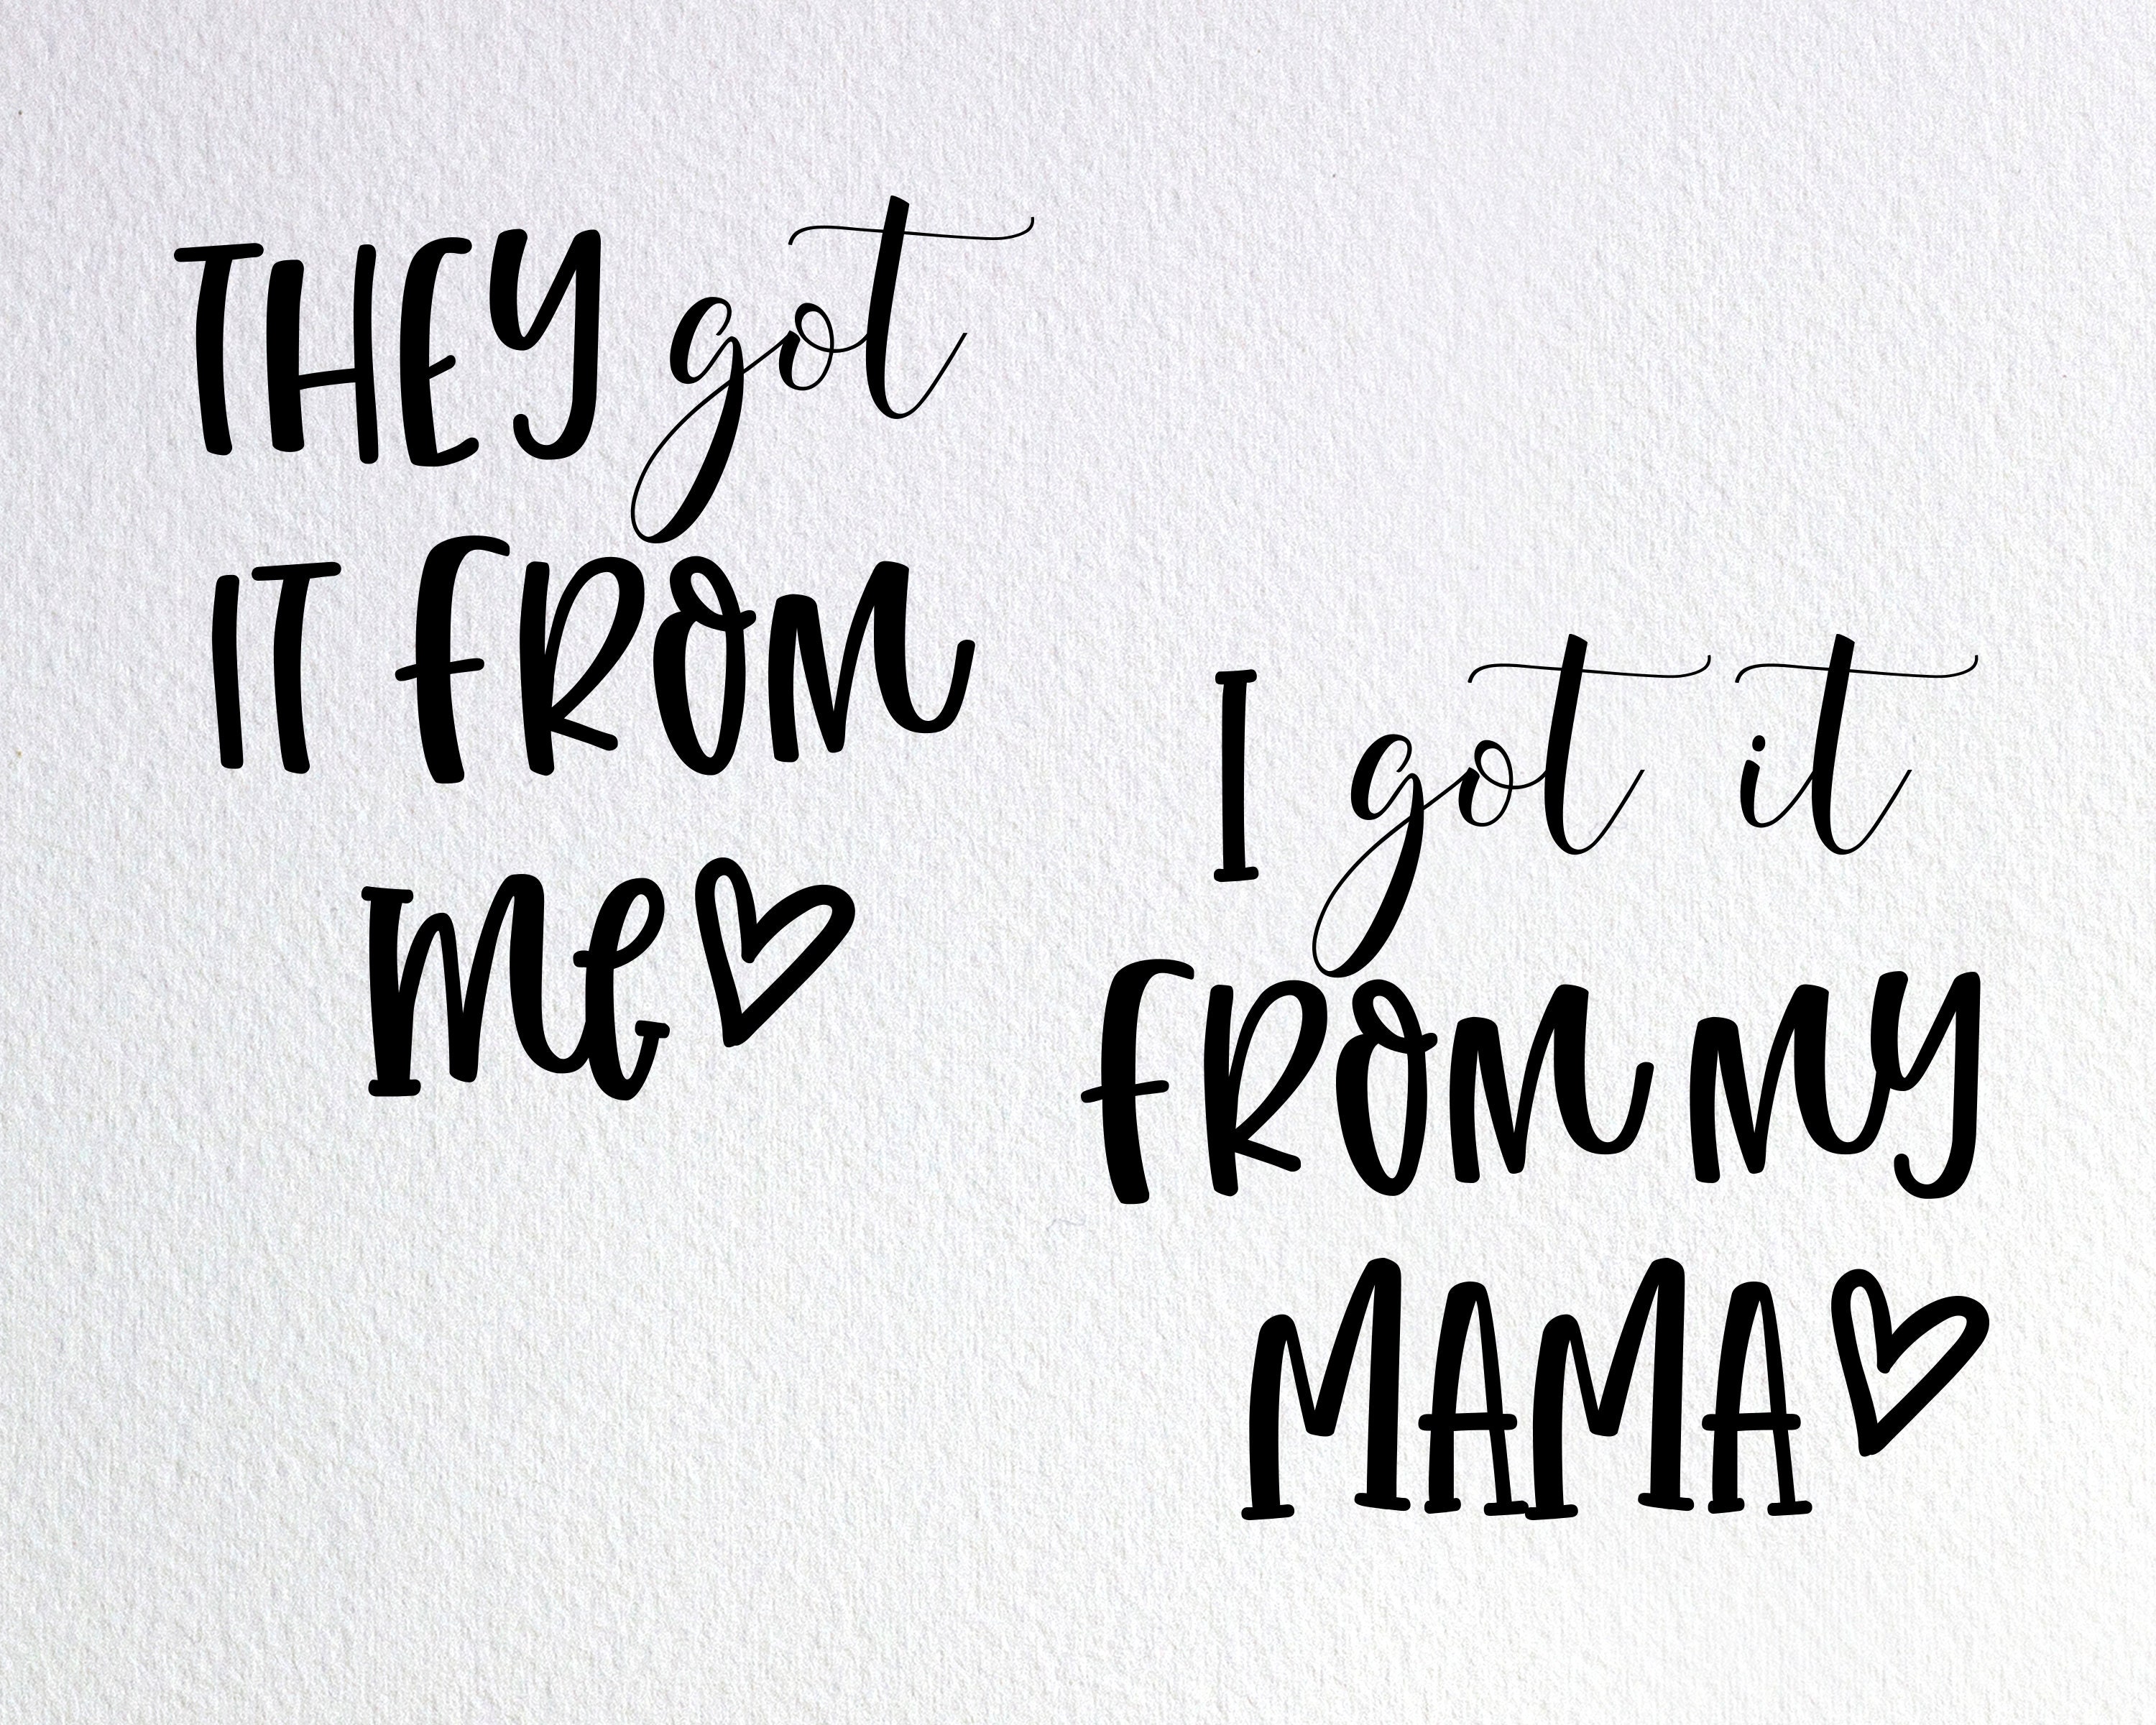 THEY got
IT FROM
Me
I got it
FROM MY
MAMA